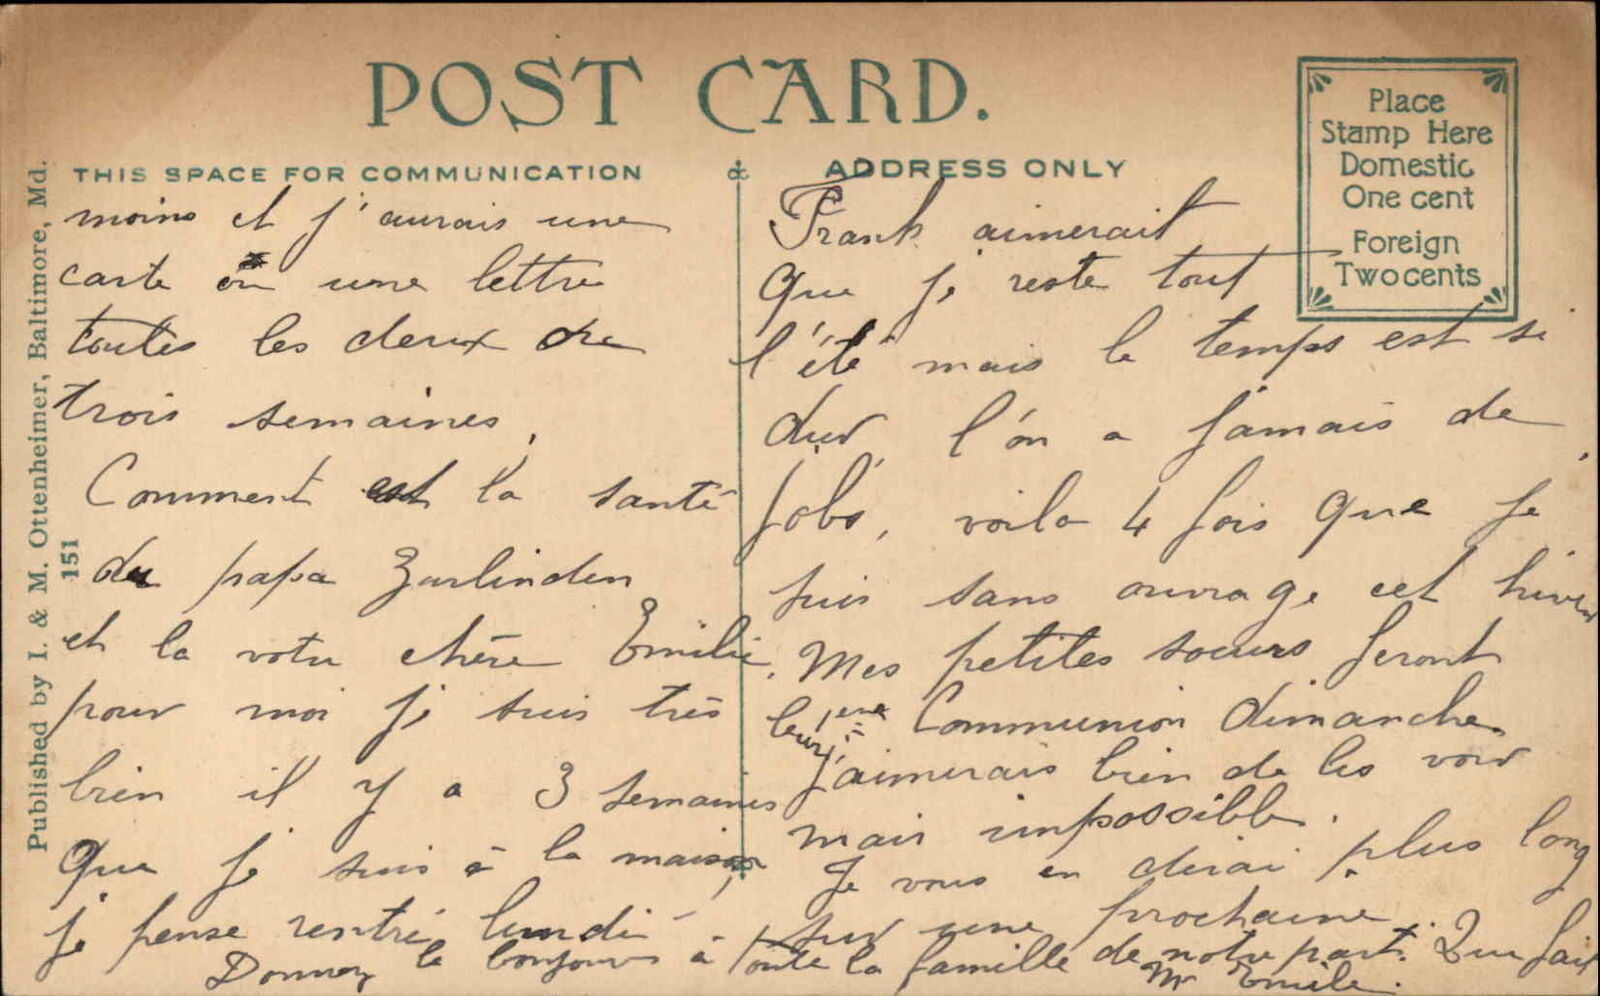 POST CARD.
Place
Stamp Here
Domestic
One cent
Foreign
Two cents
THIS SPACE FOR COMMUNICATION
ADDRESS ONLY
Published by I. & M. Ottenheimer, Baltimore, Md.
151
moins et j'aurais une
carte ou une lettre
toutes les deux ou
trois semaines,
Comment est la santé
du papa Zurlinden
et la votre chère Emilie,
pour moi je suis très
bien il y a 3 semaines
que je suis à la maison,
je pense rentré lundi
Frank aimerait
que je reste tout
l'été mais le temps est si
dur, l'on a jamais de
jobs, voila 4 fois que je
suis sans ouvrage cet hiver
Mes petites soeurs feront
leur 1ere Communion dimanche
j'aimerais bien de les voir
mais impossible.
Je vous en dirai plus long
sur une prochaine. Que fait
Mr Emile.
Donnez le bonjours à toute la famille de notre part.